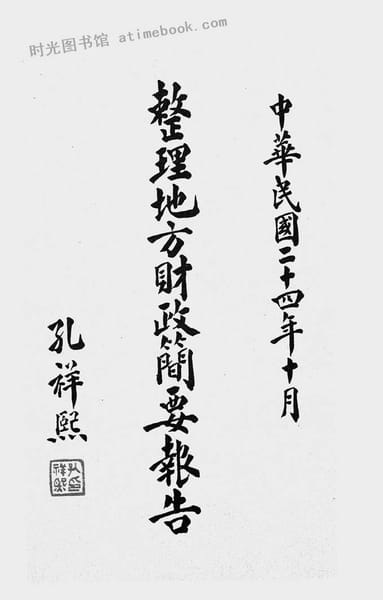 时光图书馆 atimebook.com
中華民國二十四年十月
整理地方財政簡要報告
孔祥熙
孔祥熙印